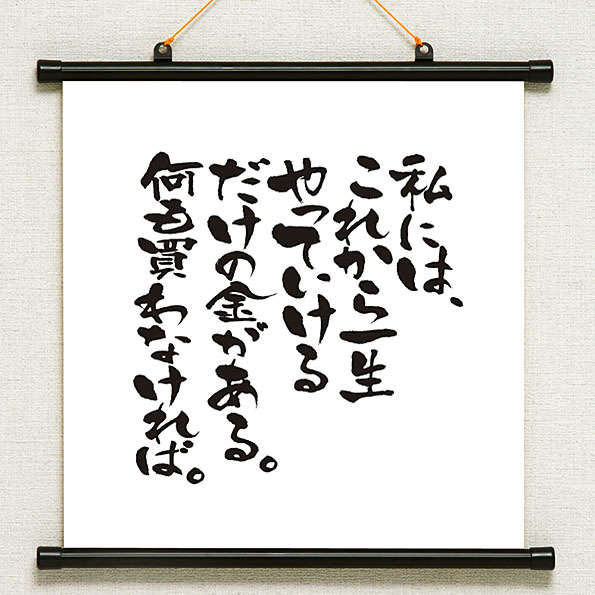 私には、
これから一生
やっていける
だけの金がある。
何も買わなければ。